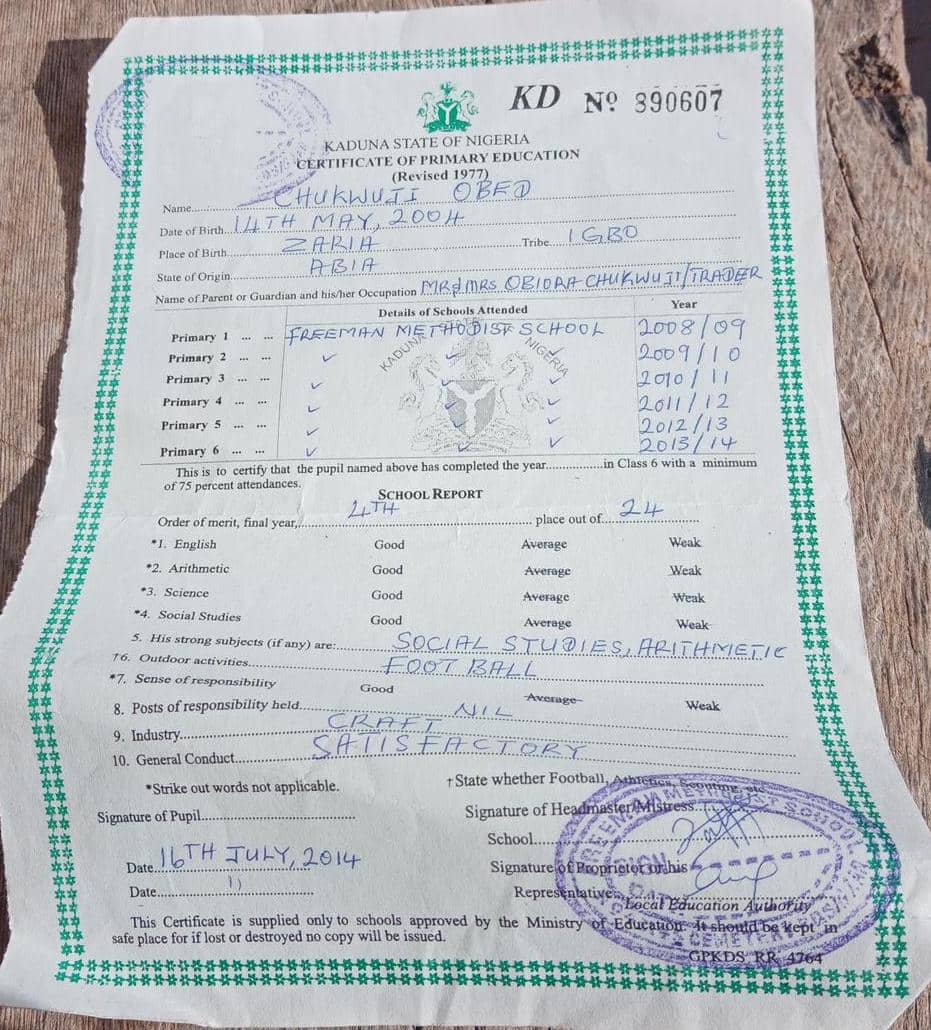 KD Nº 390607
KADUNA STATE OF NIGERIA
CERTIFICATE OF PRIMARY EDUCATION
(Revised 1977)
Name CHUKWUJI OBED
Date of Birth 14TH MAY, 2004
Place of Birth ZARIA Tribe IGBO
State of Origin ABIA
Name of Parent or Guardian and his/her Occupation MR & MRS OBIORA CHUKWUJI/TRADER
Details of Schools Attended Year
Primary 1 ... ... FREEMAN METHODIST SCHOOL 2008/09
Primary 2 ... ... ✓ ✓ ✓ 2009/10
Primary 3 ... ... ✓ ✓ ✓ 2010/11
Primary 4 ... ... ✓ ✓ ✓ 2011/12
Primary 5 ... ... ✓ ✓ ✓ 2012/13
Primary 6 ... ... ✓ ✓ ✓ 2013/14
KADUNA STATE NIGERIA
This is to certify that the pupil named above has completed the year...............in Class 6 with a minimum
of 75 percent attendances.
SCHOOL REPORT
Order of merit, final year, 4TH place out of 24
*1. English Good Average Weak
*2. Arithmetic Good Average Weak
*3. Science Good Average Weak
*4. Social Studies Good Average Weak
5. His strong subjects (if any) are: SOCIAL STUDIES, ARITHMETIC
†6. Outdoor activities FOOT BALL
*7. Sense of responsibility Good Average Weak
8. Posts of responsibility held NIL
9. Industry CRAFT
10. General Conduct SATISFACTORY
*Strike out words not applicable. †State whether Football, Athletics, Scouting, etc
Signature of Pupil Signature of Headmaster/Mistress
School
Date 16TH JULY, 2014 Signature of Proprietor or his
Date 11 Representative
Local Education Authority
This Certificate is supplied only to schools approved by the Ministry of Education. It should be kept in
safe place for if lost or destroyed no copy will be issued.
GPKDS RR 4764